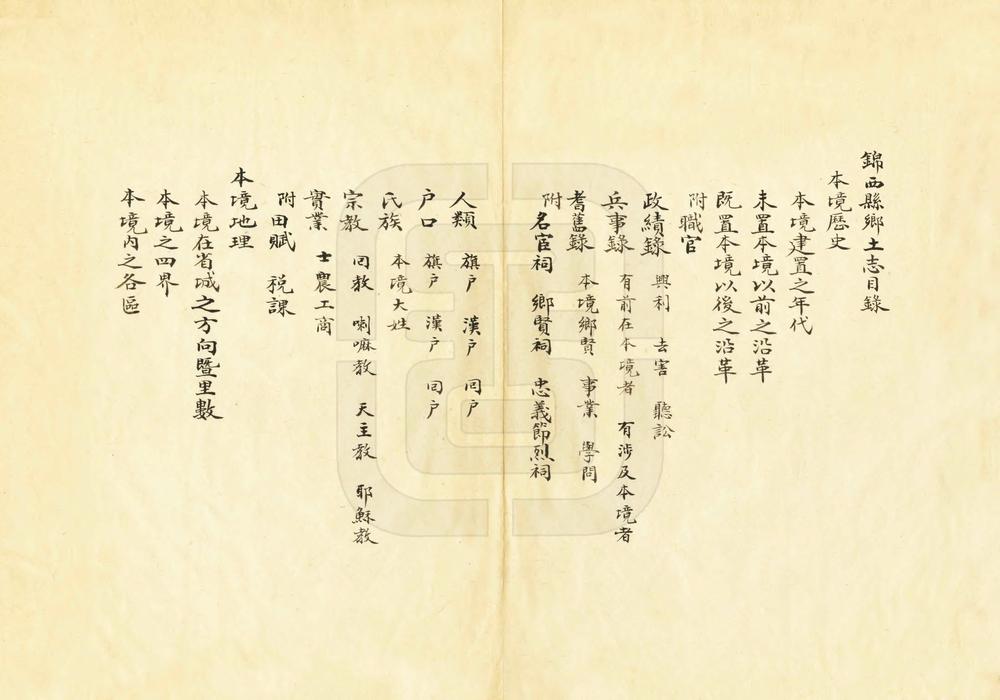 錦西縣鄉土志目錄
本境歷史
本境建置之年代
未置本境以前之沿革
既置本境以後之沿革
附職官
政績錄 興利 去害 聽訟
兵事錄 有前在本境者 有涉及本境者
耆舊錄 本境鄉賢 事業 學問
附名宦祠 鄉賢祠 忠義節烈祠
人類 旗戶 漢戶 回戶
戶口 旗戶 漢戶 回戶
氏族 本境大姓
宗教 回教 喇嘛教 天主教 耶穌教
實業 士農工商
附田賦 税課
本境地理
本境在省城之方向暨里數
本境之四界
本境內之各區